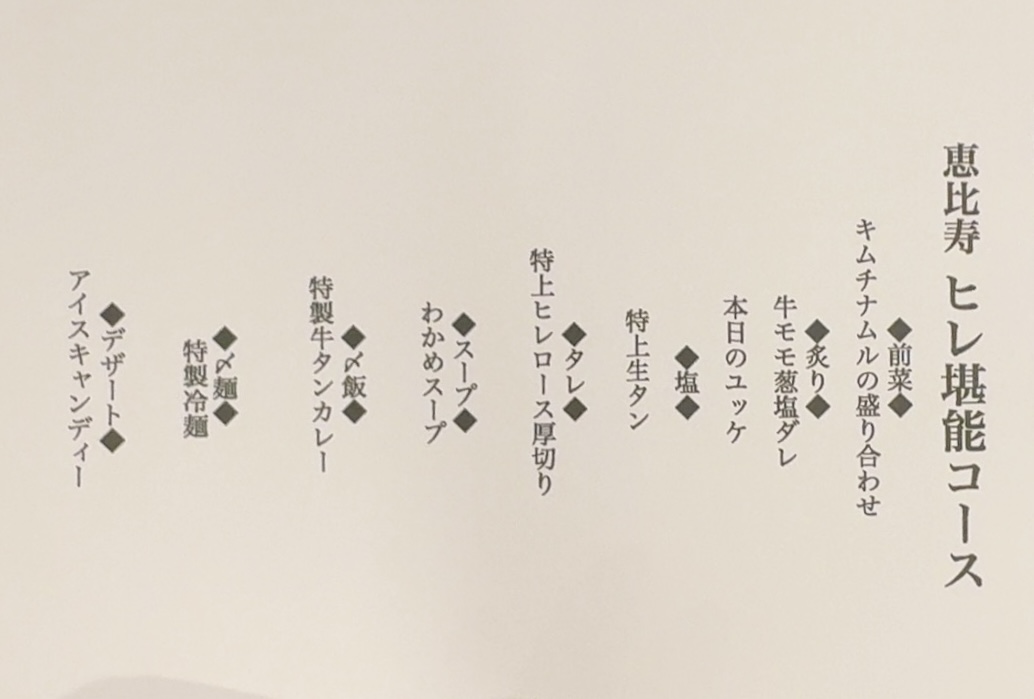 恵比寿 ヒレ堪能コース
◆前菜◆
キムチナムルの盛り合わせ
◆炙り◆
牛モモ葱塩ダレ
本日のユッケ
◆塩◆
特上生タン
◆タレ◆
特上ヒレロース厚切り
◆スープ◆
わかめスープ
◆〆飯◆
特製牛タンカレー
◆〆麺◆
特製冷麺
◆デザート◆
アイスキャンディー